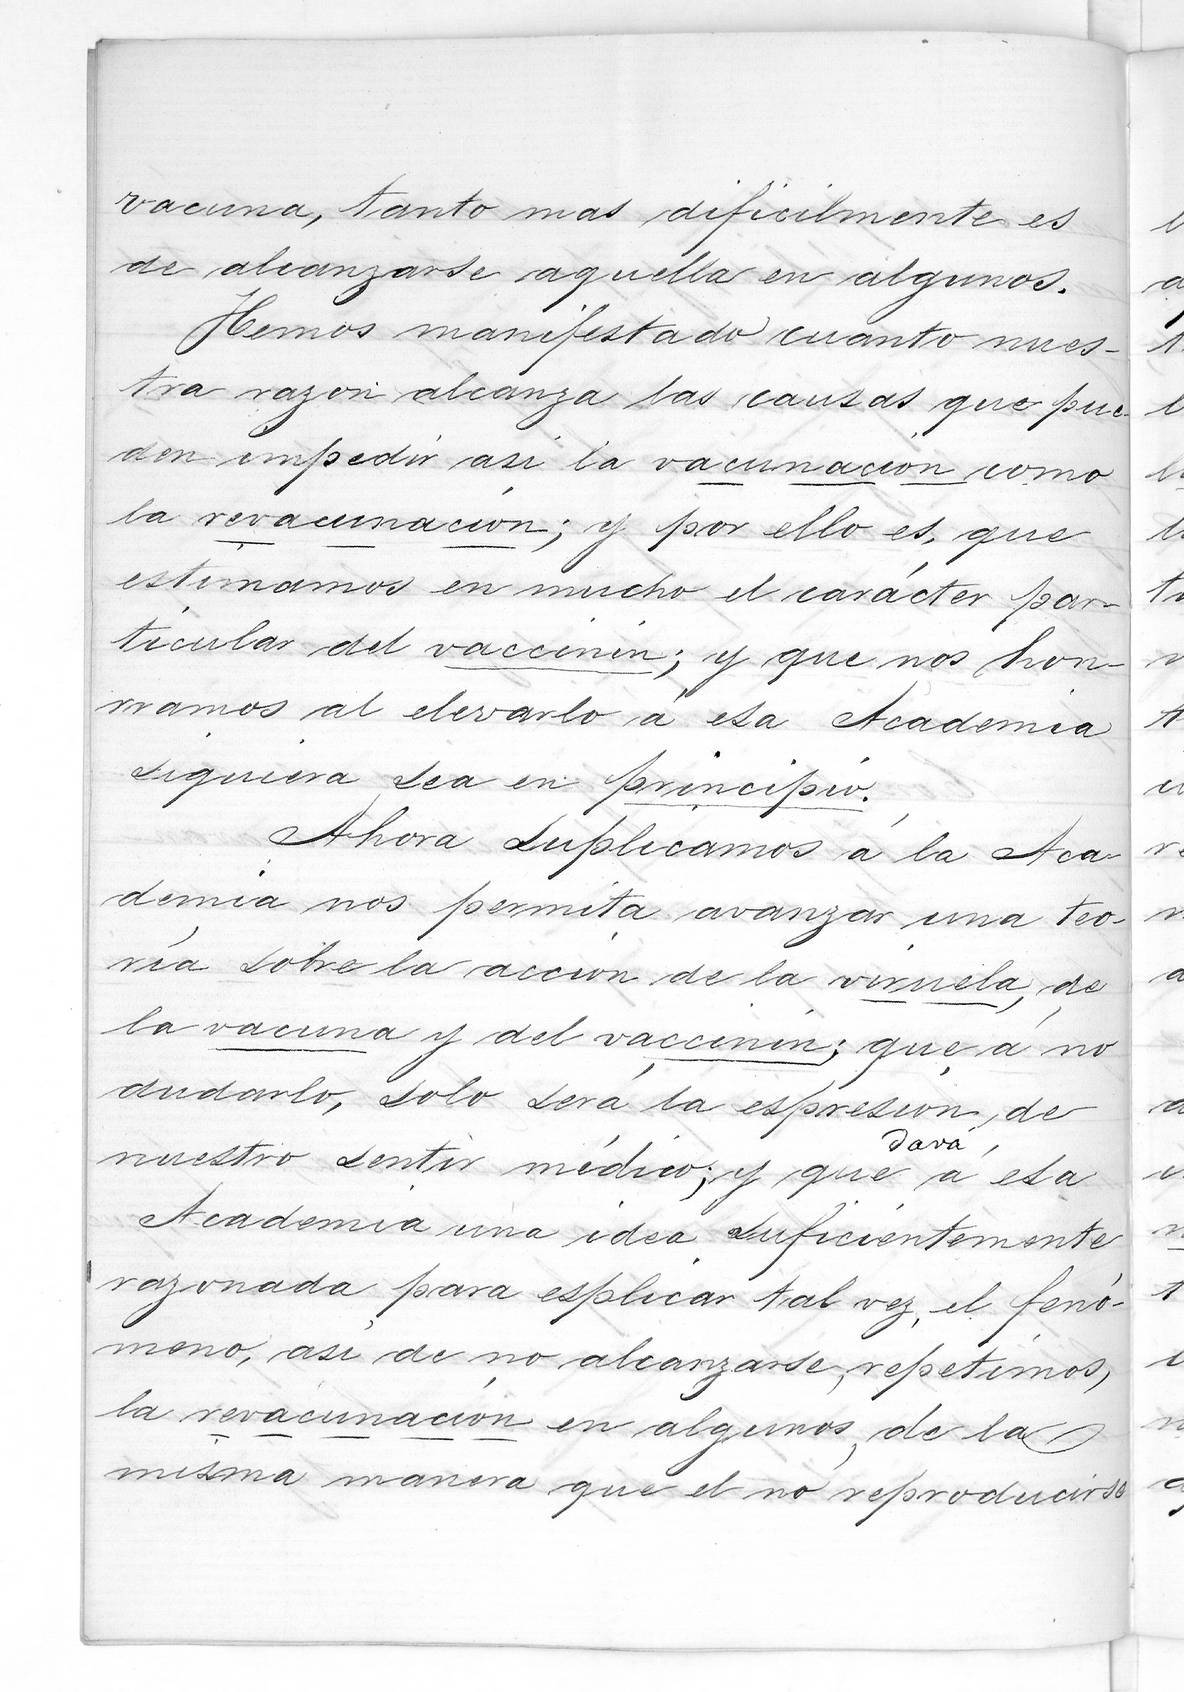 vacuna, tanto mas dificilmente es
de alcanzarse aquella en algunos.
Hemos manifestado cuanto nues-
tra razon alcanza las causas que pue-
den impedir asi la vacunación como
la revacunación; y por ello es, que
estimamos en mucho el carácter par-
ticular del vaccinin; y que nos hon-
rramos al elevarlo á esa Academia
siquiera sea en principio.
Ahora suplicamos á la Aca-
demia nos permita avanzar una teo-
ría sobre la acción de la viruela, de
la vacuna y del vaccinin; que á no
dudarlo, solo será la espresión de
nuestro sentir médico; y que dará á esa
Academia una idea suficientemente
razonada para esplicar tal vez, el fenó-
meno, asi de no alcanzarse, repetimos,
la revacunación en algunos, de la
misma manera que el no reproducirse